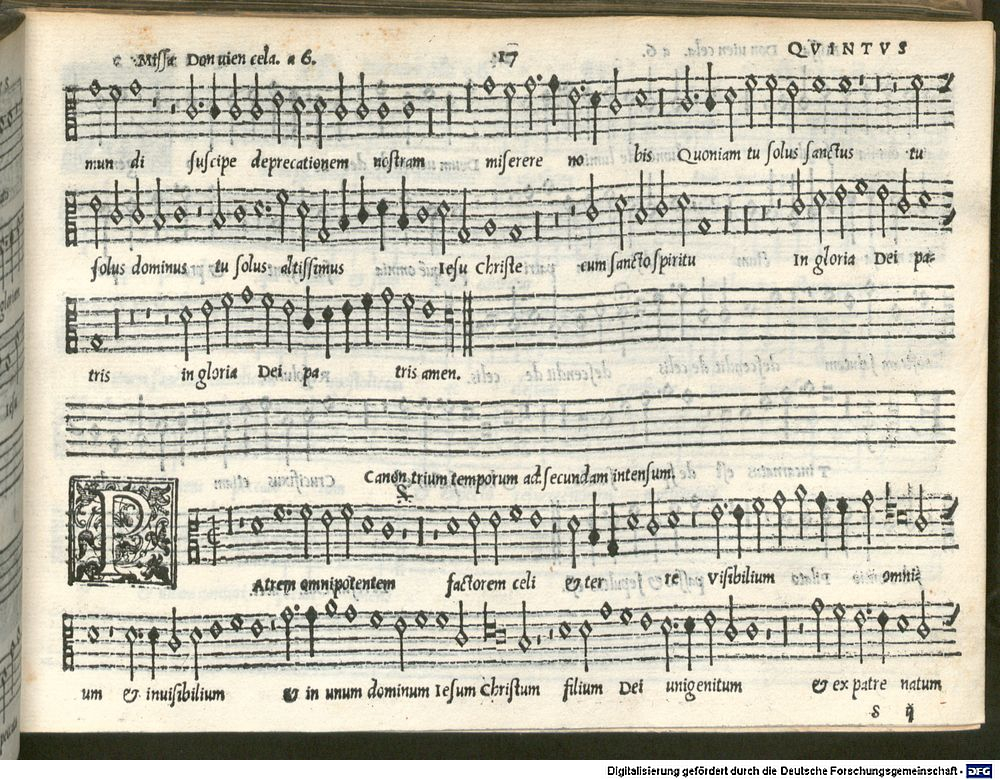 Missa Don vien cela. a 6. 17 QVINTVS
mun di suscipe deprecationem nostram miserere no bis Quoniam tu solus sanctus tu
solus dominus tu solus altissimus Iesu Christe cum sancto spiritu In gloria Dei pa-
tris in gloria Dei pa tris amen.
Canon trium temporum ad secundam intensum,
P Atrem omnipotentem factorem celi & ter re visibilium omni
um & invisibilium & in unum dominum Iesum Christum filium Dei unigenitum & ex patre natum
S
Digitalisierung gefördert durch die Deutsche Forschungsgemeinschaft - DFG